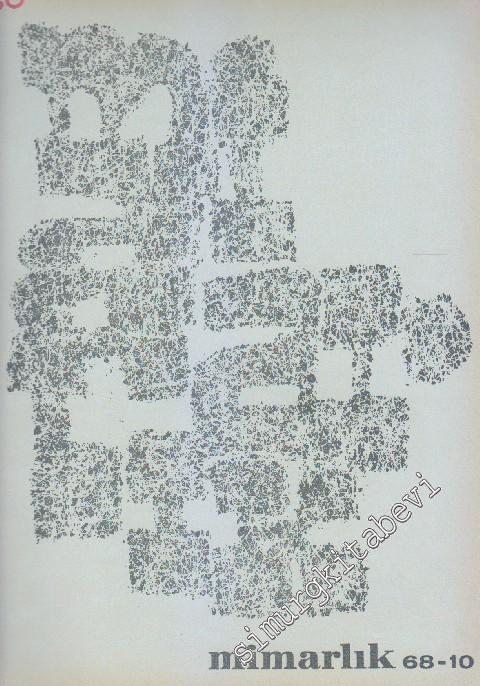 simurgkitabevi
mimarlık 68-10